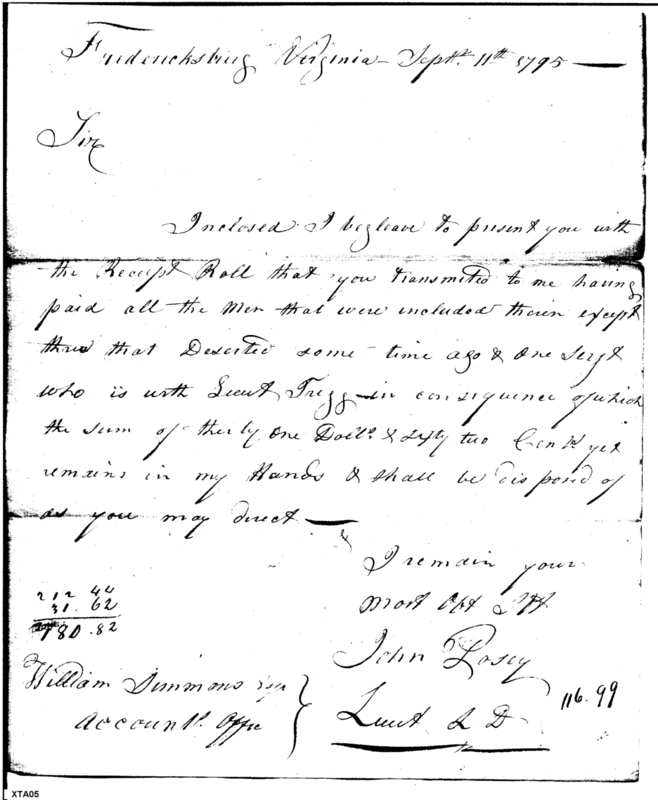 Fredericksburg Virginia - Septr. 11th 1795
Sir
Inclosed I beg leave to present you with
the Receipt Roll that you transmited to me having
paid all the Men that were included therin except
three that Deserted some time ago & one Sergt
who is with Lieut Trigg in consequence of which
the sum of thirty one Dolls. & sixty two Cents yet
remains in my Hands & shall be disposed of
as you may direct
I remain your
most Obt
John Posey
Lieut L D
212 44
31. 62
180.82
116.99
William Simmons Esqr
Accountt. Offe
XTA05